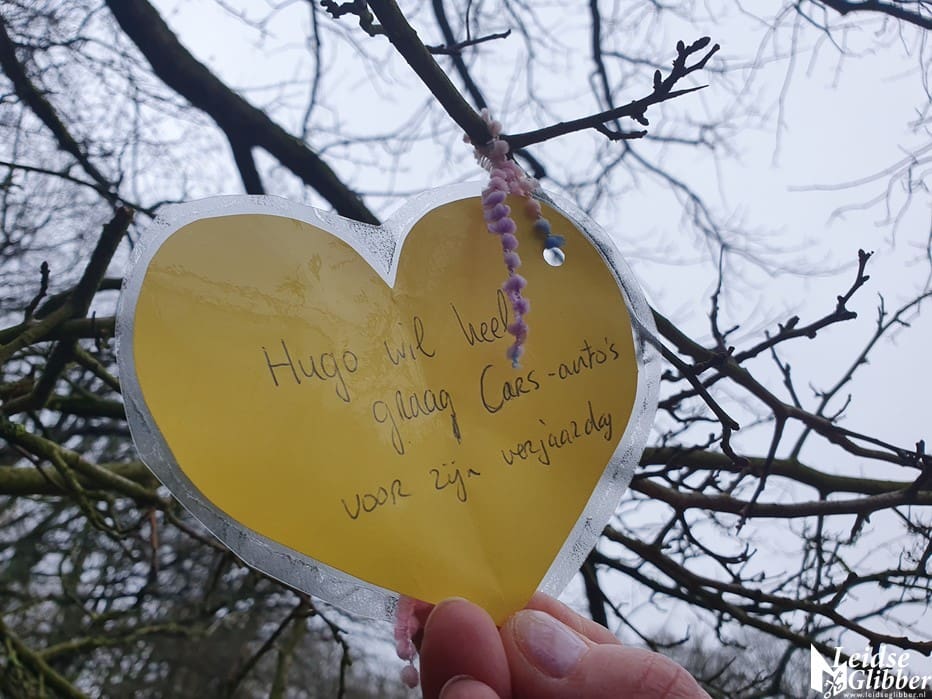 Hugo wil heel
graag Cars-auto's
voor zijn verjaardag
Leidse
Glibber
www.leidseglibber.nl